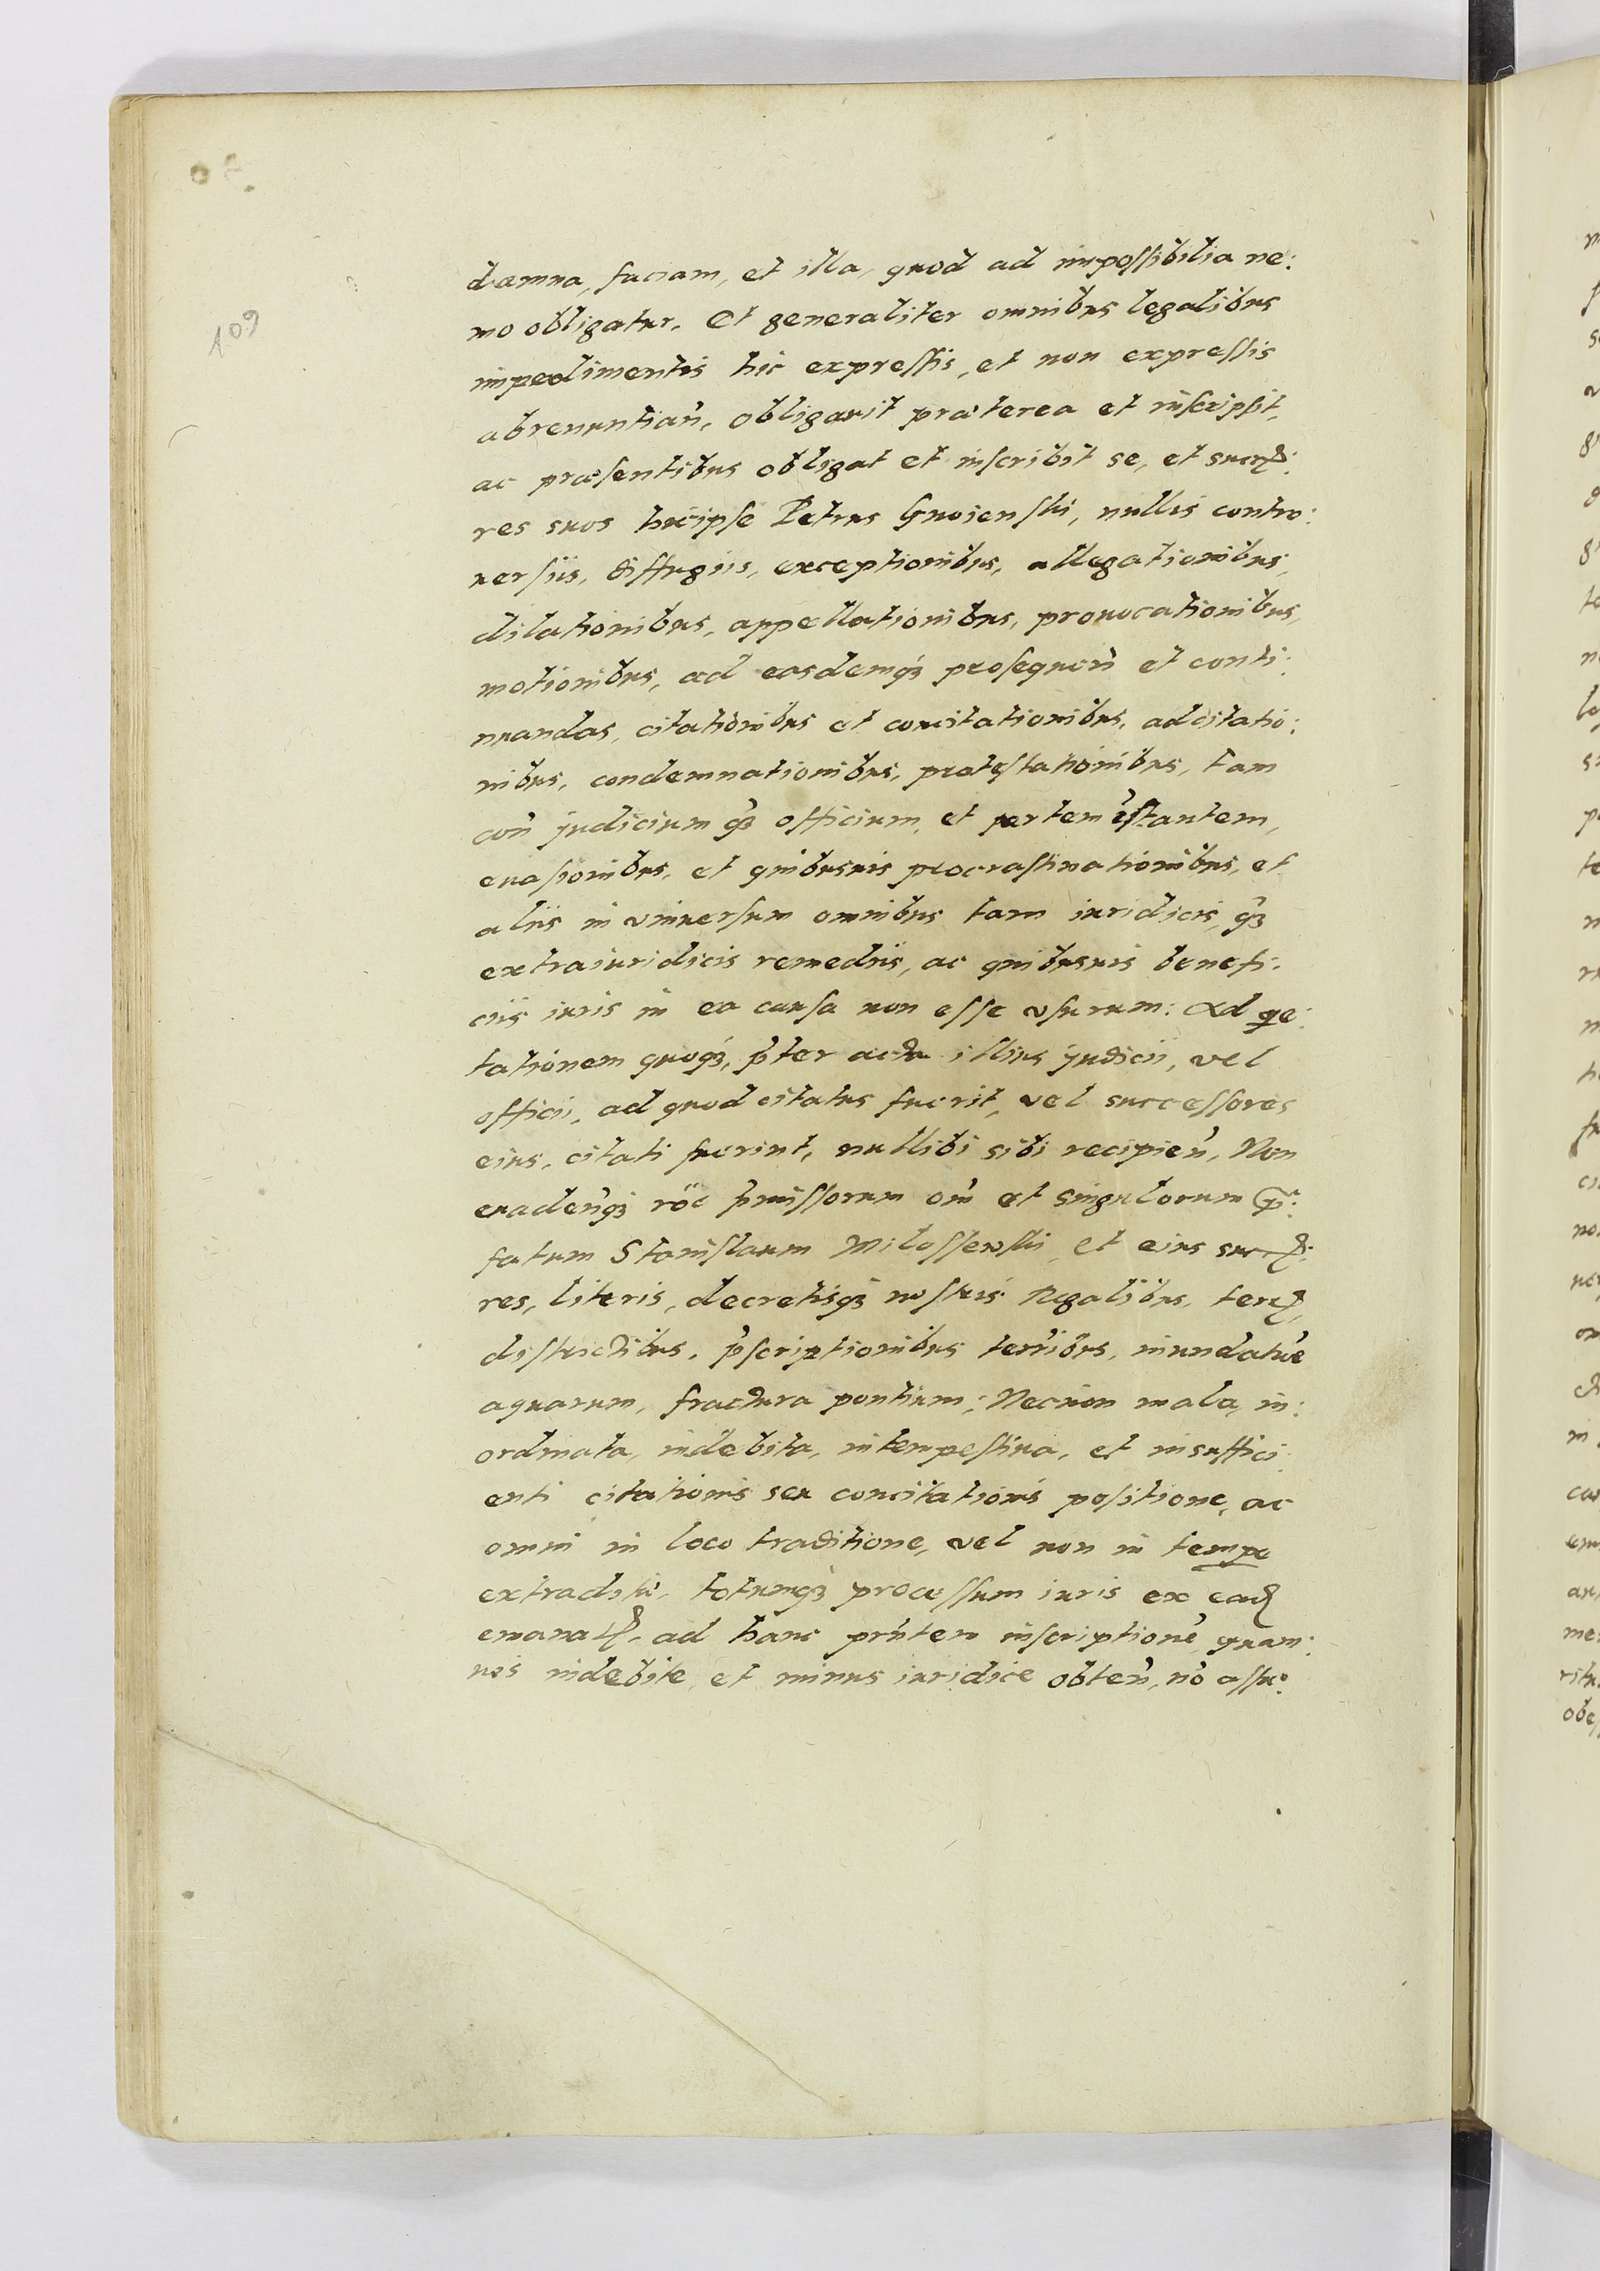 109
damna, faciam, et illa, quod ad impossibilia ne:
mo obligatur. Et generaliter omnibus legalibus
impedimentis hic expressis, et non expressis
abrenuntian̄, obligavit præterea et inscripsit,
ac præsentibus obligat et inscribit se, et
res suos hicipse Petrus Gnoienski, nullis contro:
uersiis, diffugiis, exceptionibus, allegationibus,
dilationibus, appellationibus, prouocationibus,
motionibus, ad easdemqȝ prosequen̄ et conti:
nuandas, citationibus et concitationibus, adcitatio:
nibus, condemnationibus, protestationibus, tam
con̄ judicium qȝ officium, et partem istantem,
euasionibus, et quibusuis procrastinationibus, et
aliis in vniuersum omnibus tam iuridicis, qȝ
extraiuridicis remediis, ac quibusuis benefi:
ciis iuris in ea causa non esse vsurum: Ad
tationem quoqȝ, p̄ter acta illius judicii, vel
officii, ad quod citatus fuerit, vel successores
eius, citati fuerint, nullibi sibi recipien̄, Non
euaden̄qȝ rōe p̄missorum om̄ et singulorum
fatum Stanislaum Milossewski, et eius
res, literis, decretisqȝ nostris Regalibus,
districtibus, p̄scriptionibus terr̄ibus, inundatōe
aquarum, fractura pontium; Necnon mala, in:
ordinata, indebita, intempestiua, et insuffici
enti citationis seu concitationis positione, ac
omni in loco traditione, vel non in tempe
totumqȝ processum iuris ex
ad hanc prn̄tem inscriptionē quam:
uis indebite, et minus iuridice obten̄, nō assu: